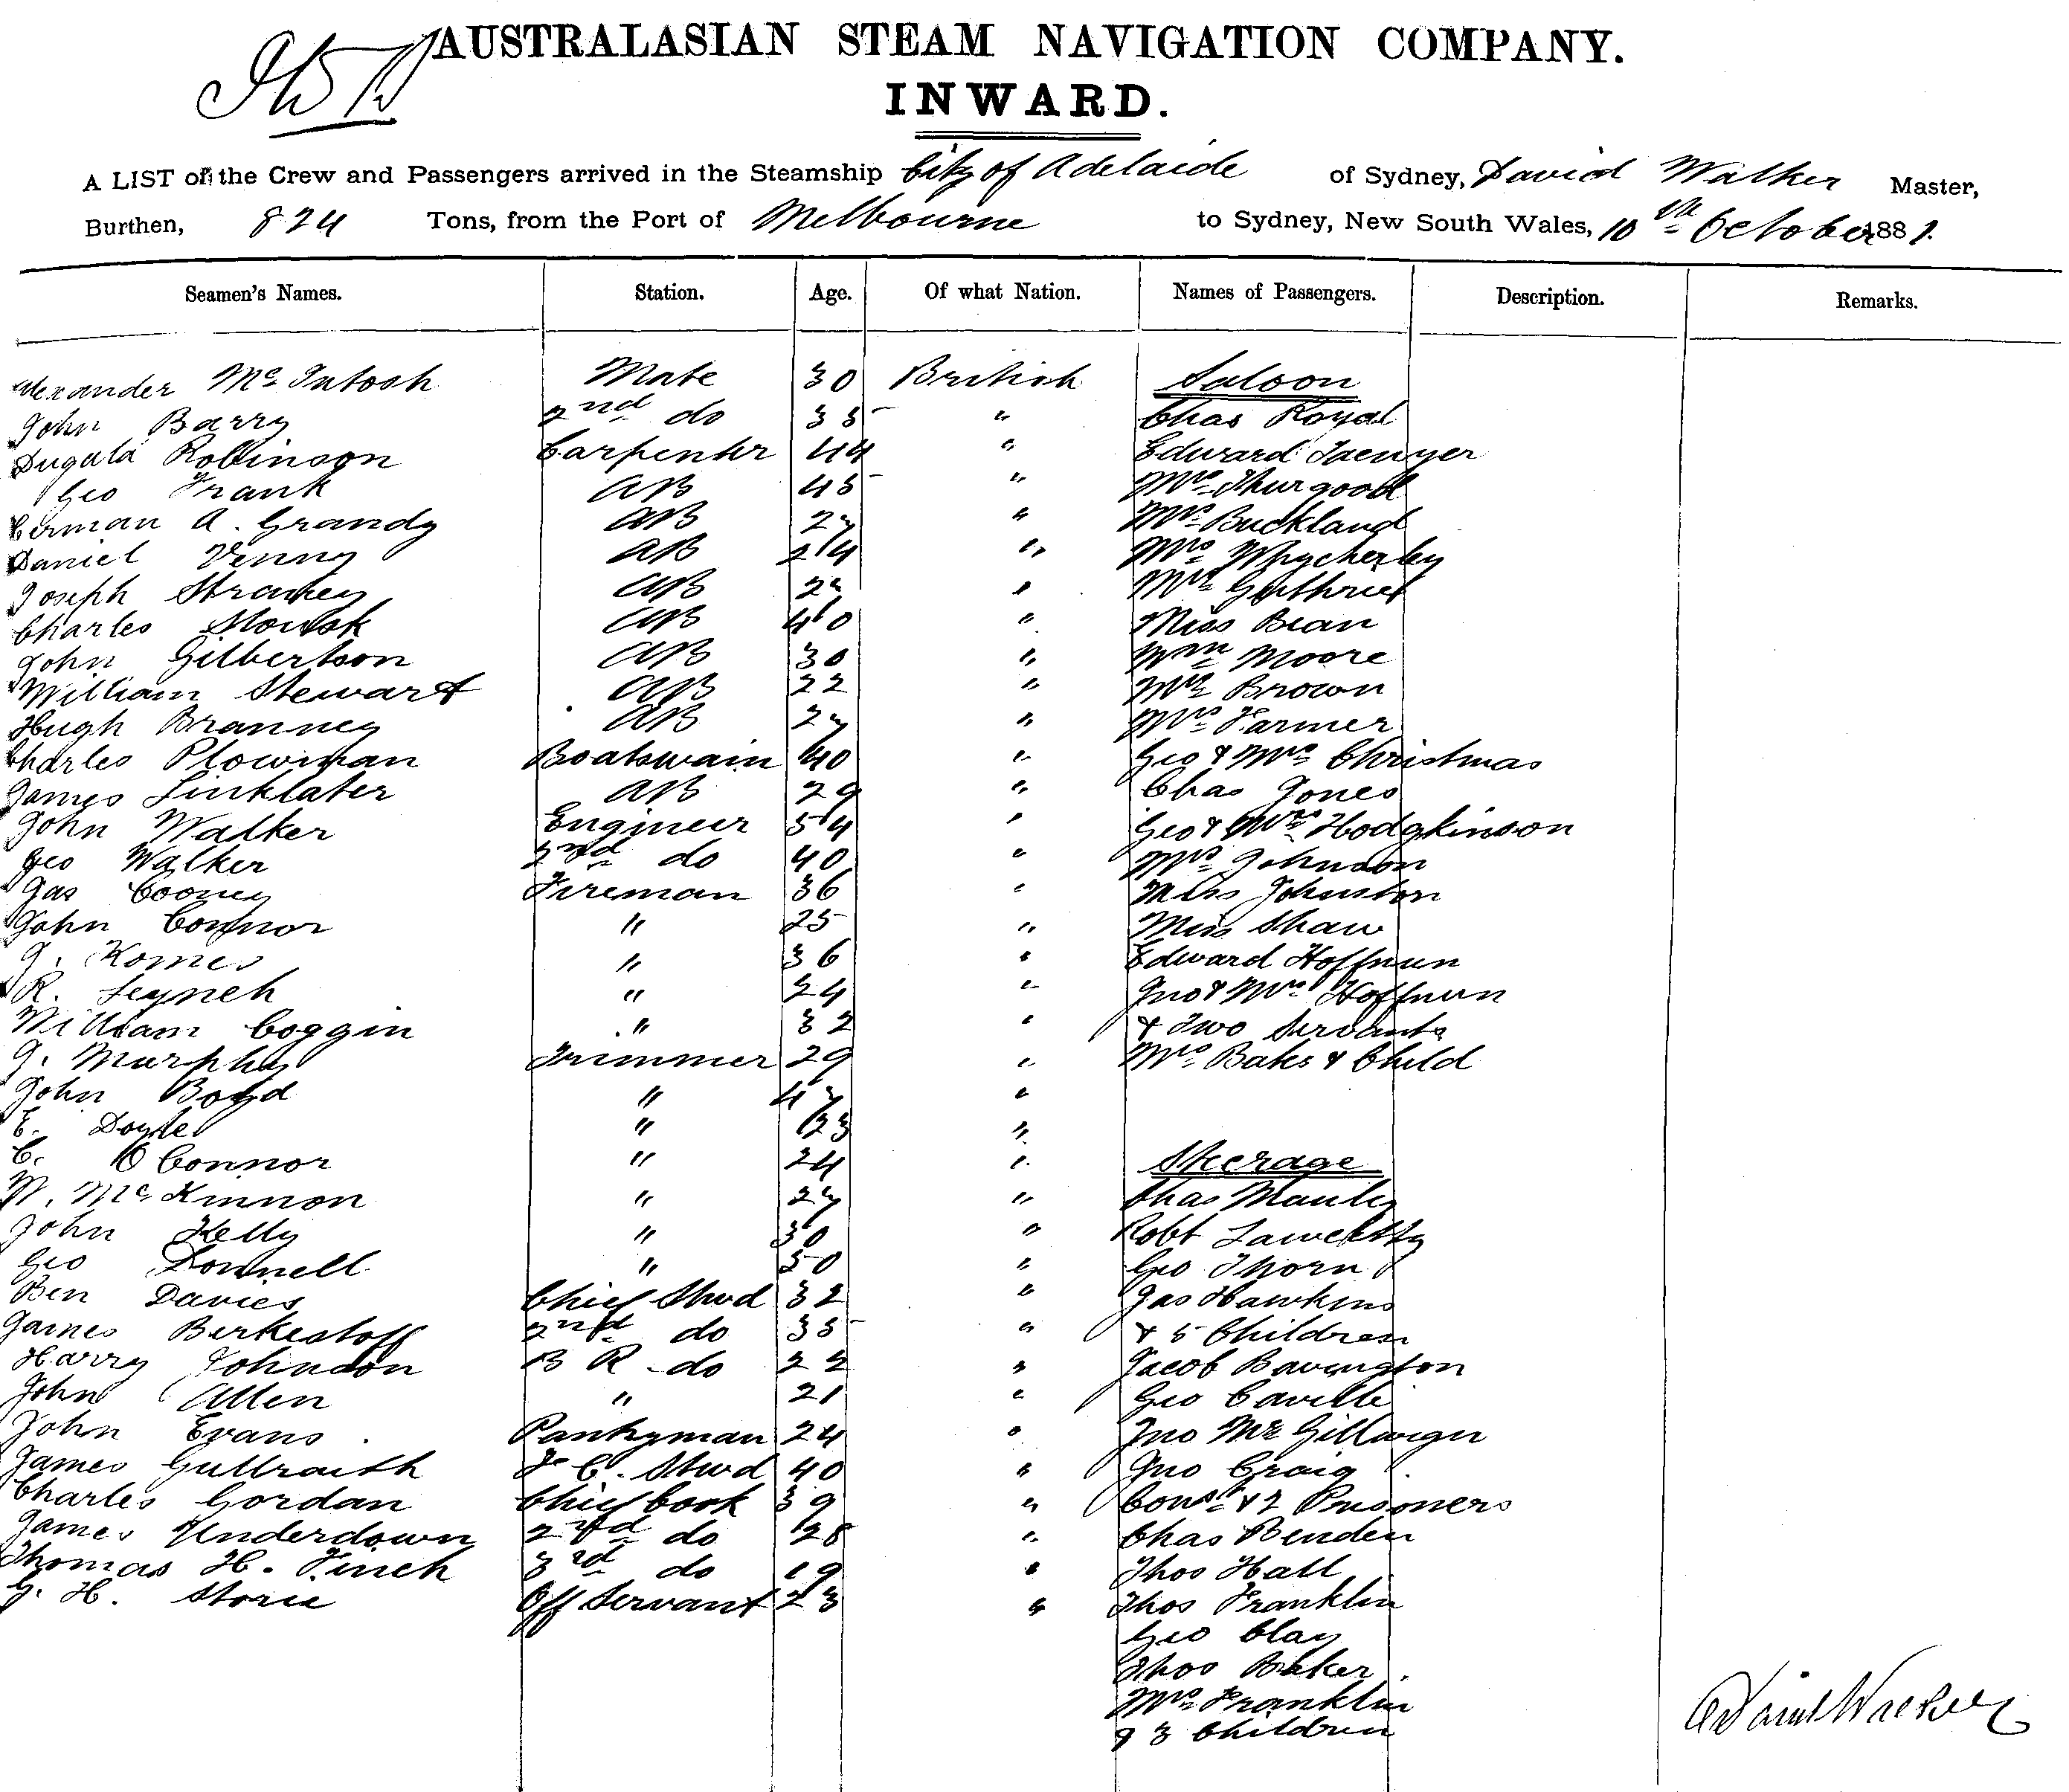 AUSTRALASIAN STEAM NAVIGATION COMPANY.
INWARD.
A LIST of the Crew and Passengers arrived in the Steamship City of Adelaide of Sydney, David Walker Master,
Burthen, 824 Tons, from the Port of Melbourne to Sydney, New South Wales, 10th October 1881.
Seamen's Names. Station. Age. Of what Nation. Names of Passengers. Description. Remarks.
Alexander McIntosh Mate 30 British Saloon
John Barry 2nd do 35 " Chas Royal
Dugald Robinson Carpenter 44 " Edward
Geo Frank AB 45 " Mrs Thurgood
Herman A. Grandy AB 27 " Mrs Buckland
Daniel Venny AB 24 " Mrs Whycherley
Joseph AB " Mrs
Charles AB 40 " Miss Bean
John Gilbertson AB 30 " Wm Moore
William Stewart AB 22 " Mrs Brown
Hugh Branney AB 27 " Mrs Farmer
Charles Plowman Boatswain 40 " Geo & Mrs Christmas
James Linklater AB 29 " Chas Jones
John Walker Engineer 54 " Geo & Mrs Hodgkinson
Geo Walker 2nd do 40 " Mrs Johnson
Jas Cooney Fireman 36 " Miss Johnston
John Connor " 25 " Miss Shaw
J. " 36 " Edward Hoffnun
R. Leynch " 24 " Jno & Mrs Hoffnun
William Coggin " 32 " & Two Servants
J. Murphy Trimmer 29 " Mrs Baker & Child
John Boyd " 47 "
E. Doyle " 23 "
C. O Connor " 24 " Steerage
W. McKinnon " 27 " Chas Manley
John Kelly " 30 " Robt
Geo Donnell " 50 " Geo Thorn
Ben Davies Chief Stwd 32 " Jas Hawkins
James Berkestoff 2nd do 35 " & 5 Children
Harry Johnson B R do 22 " Jacob Bavington
John Allen " 21 " Geo Caville
John Evans Pantryman 24 " Jno
James Gullraith F. C. Stwd 40 " Jno Craig
Charles Gordan Chief Cook 39 " Const & 2 Prisoners
James Underdown 2nd do 28 " Chas Benden
Thomas H. Finch 3rd do 19 " Thos Hall
G. H. Storie Off Servant 23 " Thos Franklin
Geo Clay
Thos Baker
Mrs Franklin
& 3 Children
David Walker